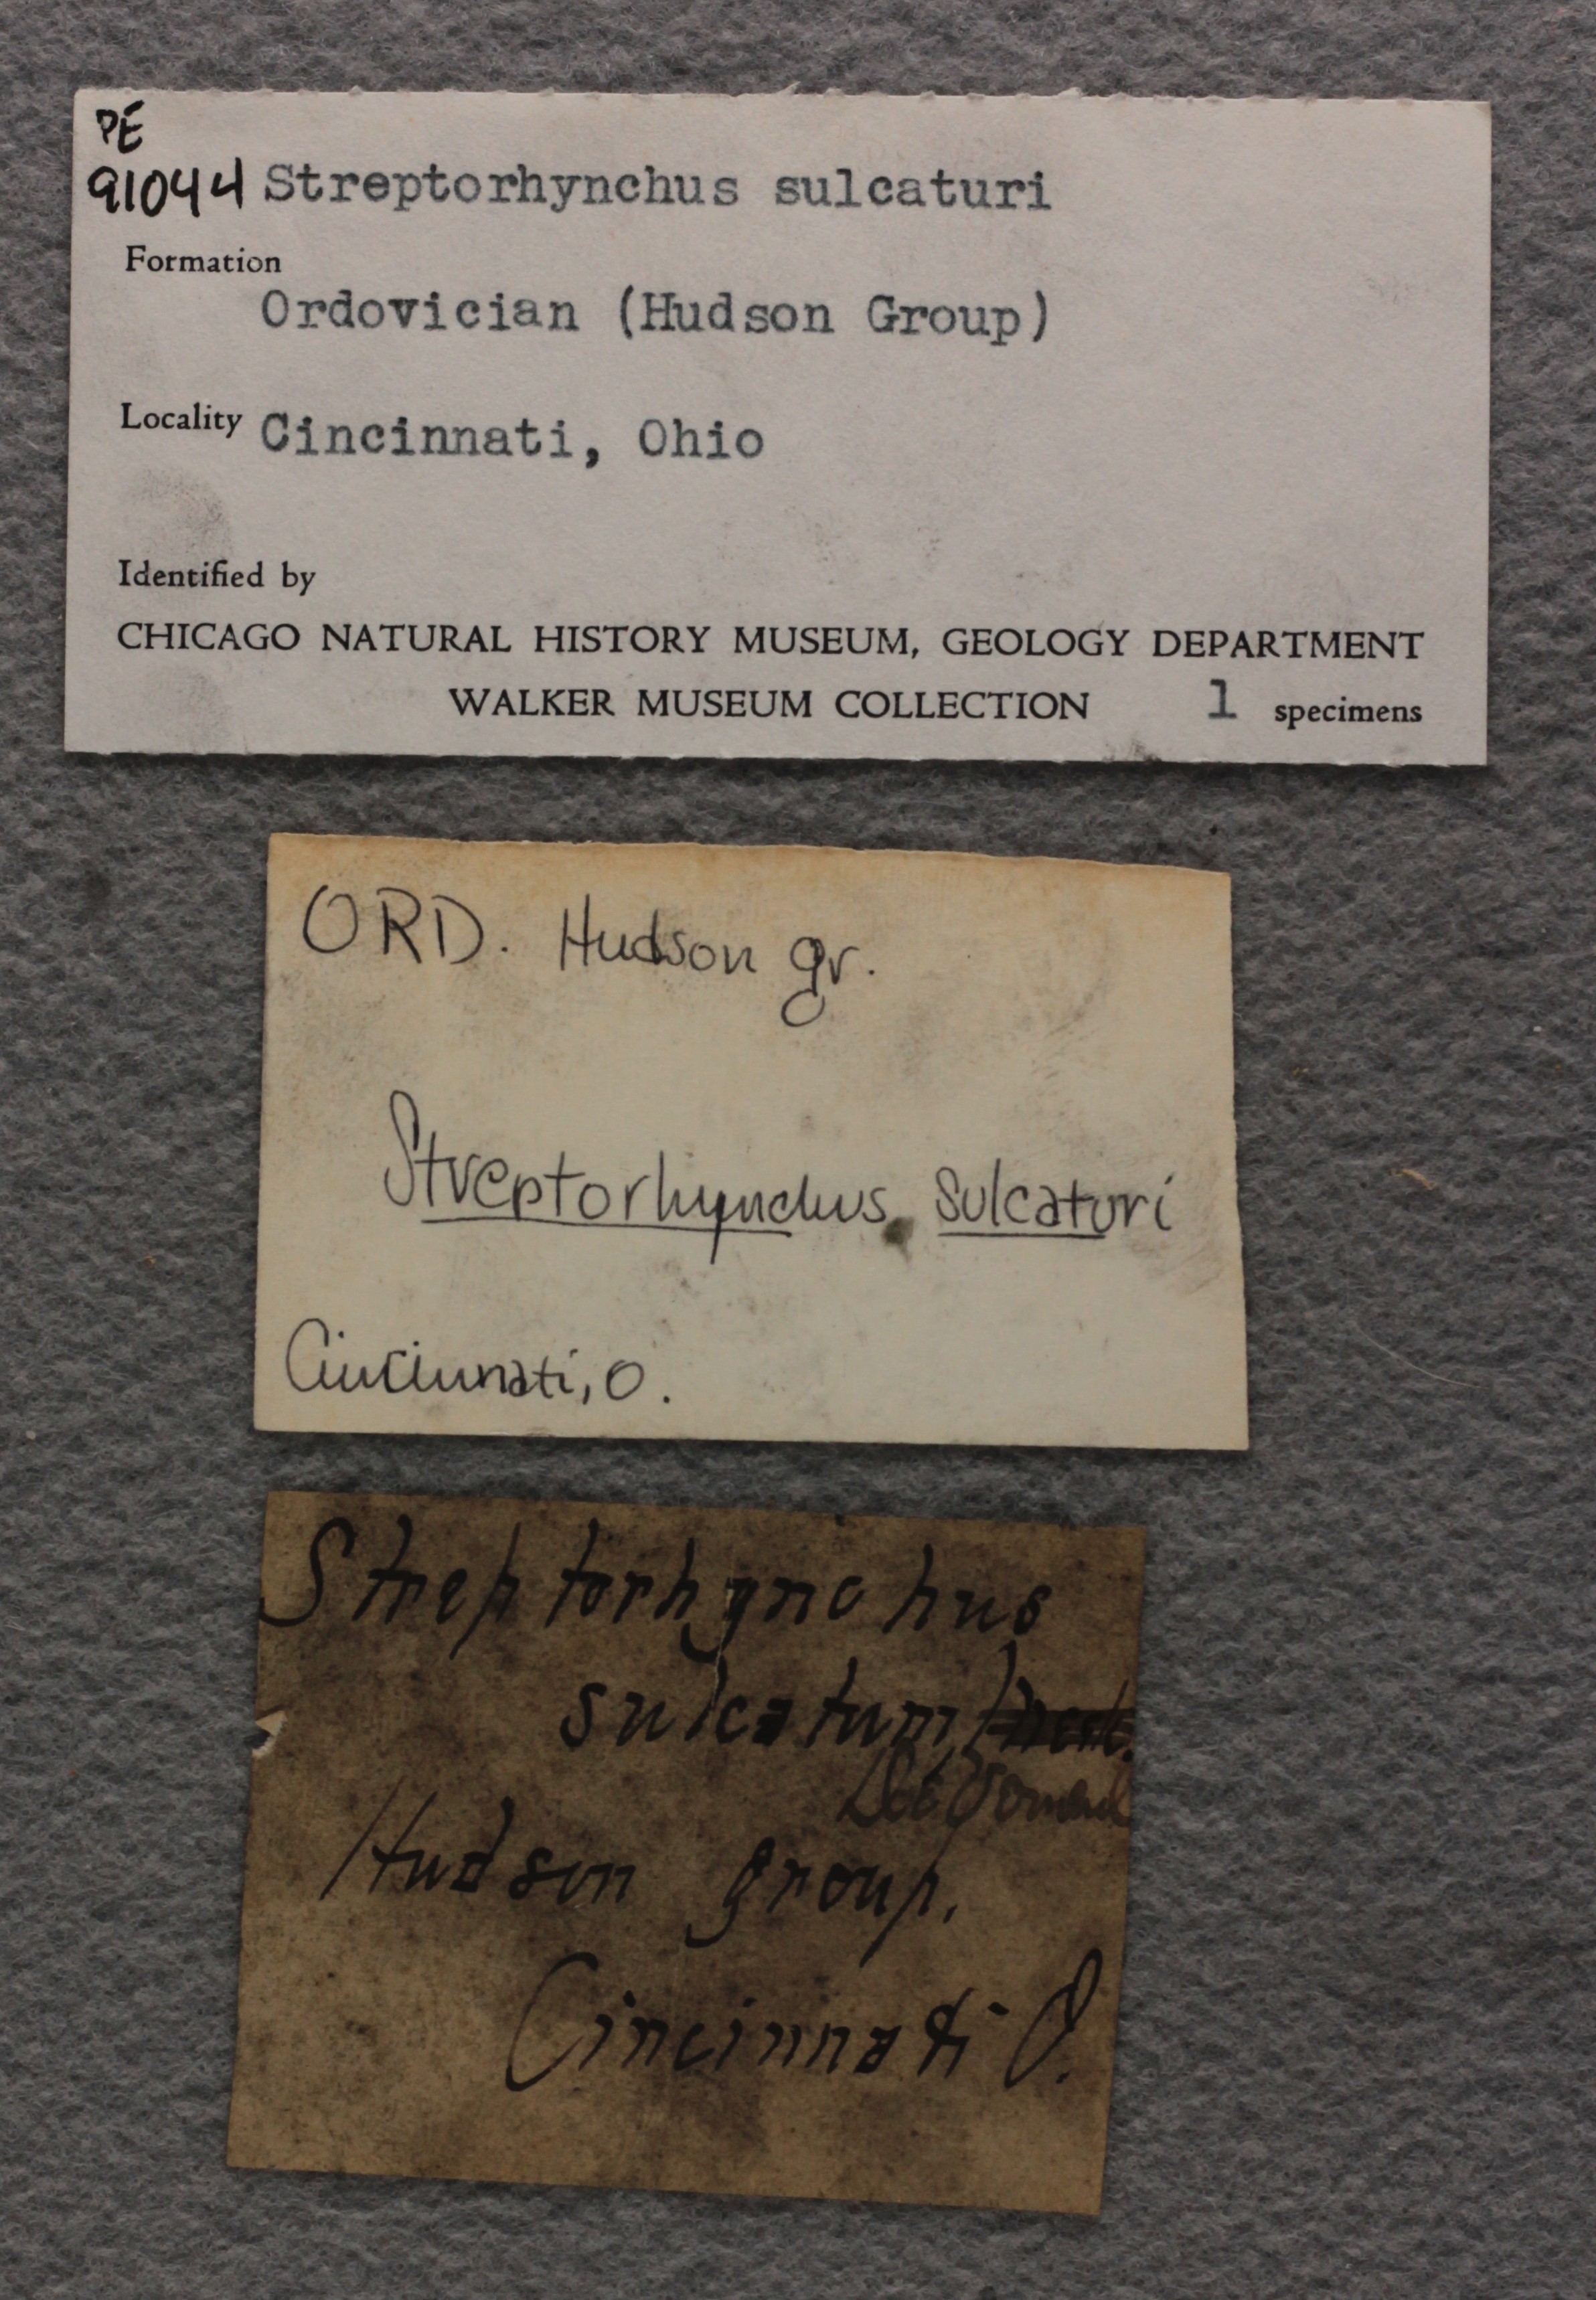 PE
91044 Streptorhynchus sulcaturi
Formation
Ordovician (Hudson Group)
Locality Cincinnati, Ohio
Identified by
CHICAGO NATURAL HISTORY MUSEUM, GEOLOGY DEPARTMENT
WALKER MUSEUM COLLECTION 1 specimens
ORD. Hudson gr.
Streptorhynchus sulcaturi
Cincinnati, O.
Streptorhynchus
sulcatum
Hudson group.
Cincinnati O.